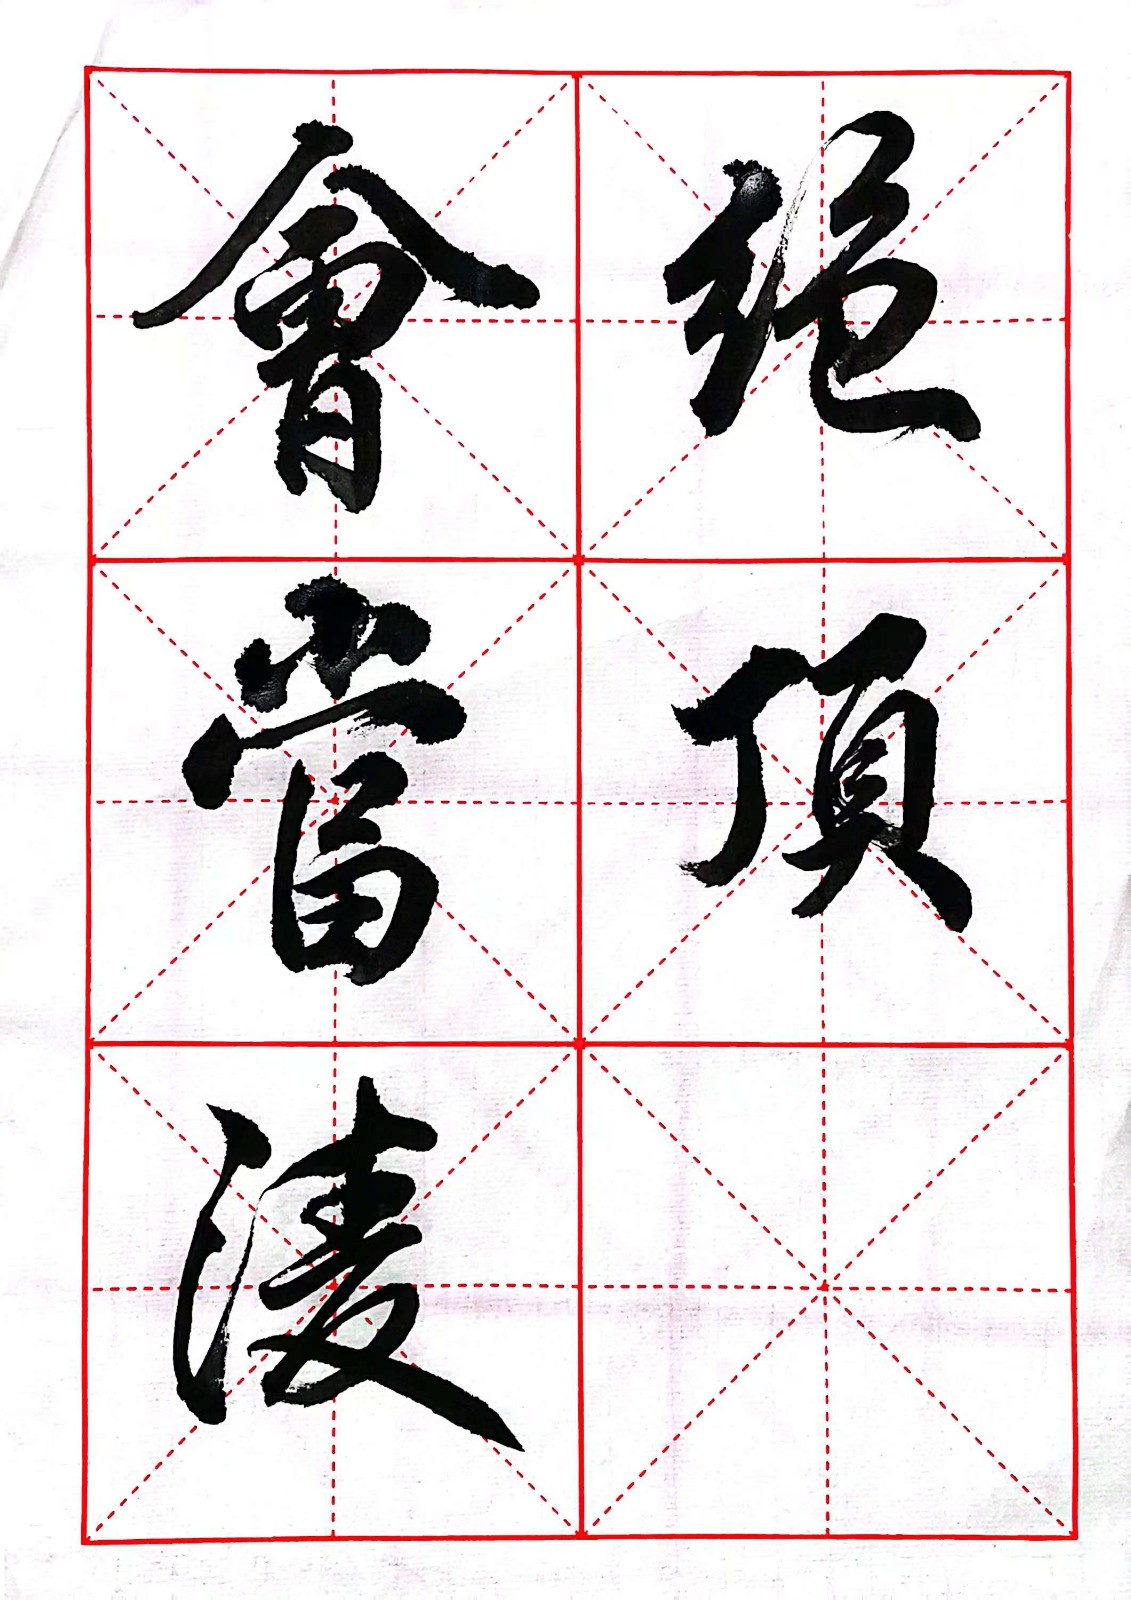 會當凌
絕頂